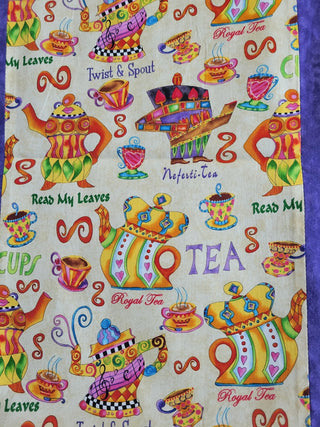 Royal Tea
My Leaves
Twist & Spout
Neferti-Tea
Read My Leaves
Read My
CUPS
TEA
Royal Tea
Royal Tea
My Leaves
Twist & Spout